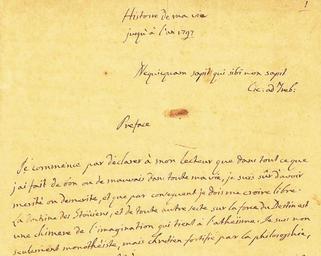 1
Histoire de ma vie
jusqu'à l'an 1797
Nequicquam sapit qui sibi non sapit
Cic: ad Treb:
Preface
Je commence par déclarer à mon lecteur que dans tout ce que
j'ai fait de bon ou de mauvais dans toute ma vie, je suis sûr d'avoir
merité ou demerité, et que par consequent je dois me croire libre.
La doctrine des Stoiciens, et de toute autre secte sur la force du Destin est
une chimere de l'imagination qui tient à l'atheisme. Je suis non
seulement monotheiste, mais chretien fortifié par la philosophie,